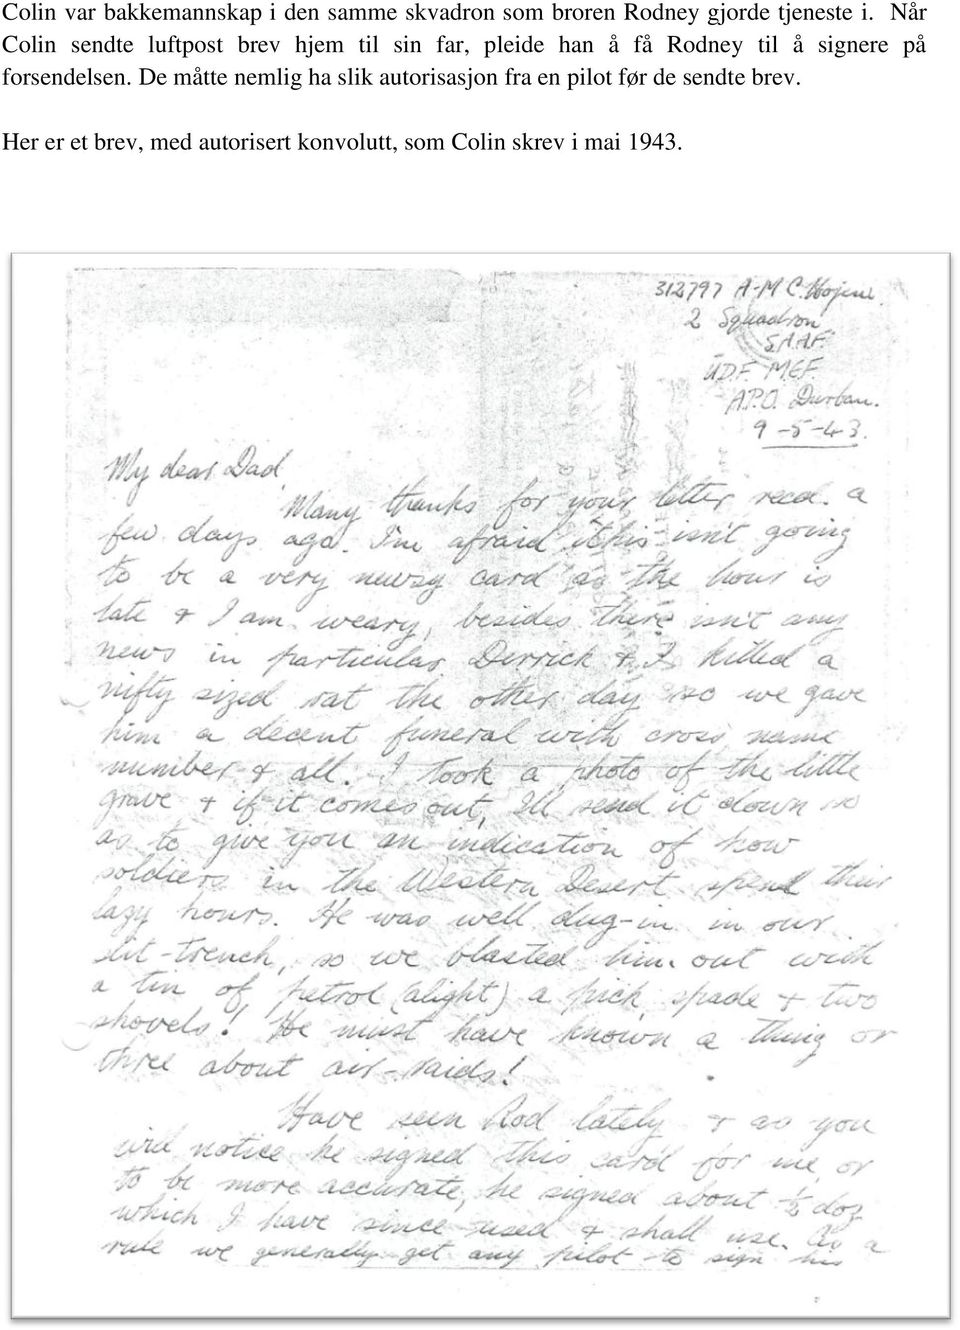 Colin var bakkemannskap i den samme skvadron som broren Rodney gjorde tjeneste i. Når
Colin sendte luftpost brev hjem til sin far, pleide han å få Rodney til å signere på
forsendelsen. De måtte nemlig ha slik autorisasjon fra en pilot før de sendte brev.
Her er et brev, med autorisert konvolutt, som Colin skrev i mai 1943.
312797 A-M C. Hojem
2 Squadron
S.A.A.F.
U.D.F. M.E.F.
A.P.O. Durban.
9-5-43.
My dear Dad,
Many thanks for your letter, recd. a
few days ago. I'm afraid this isn't going
to be a very newsy card as the hour is
late & I am weary, besides there isn't any
news in particular Derrick & I killed a
nifty sized rat the other day so we gave
him a decent funeral with cross, name
number & all. I took a photo of the little
grave & if it comes out, I'll send it down so
as to give you an indication of how
soldiers in the Western Desert spend their
lazy hours. He was well dug-in in our
slit-trench, so we blasted him out with
a tin of petrol (alight) a pick, spade & two
shovels! He must have known a thing or
three about air-raids!
Have seen Rod lately & as you
will notice he signed this card for me, or
to be more accurate, he signed about ½ doz
which I have since used & shall use. As a
rule we generally get any pilot to sign his